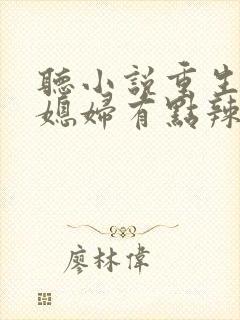 聽小說重生
媳婦有點辣
廖林偉